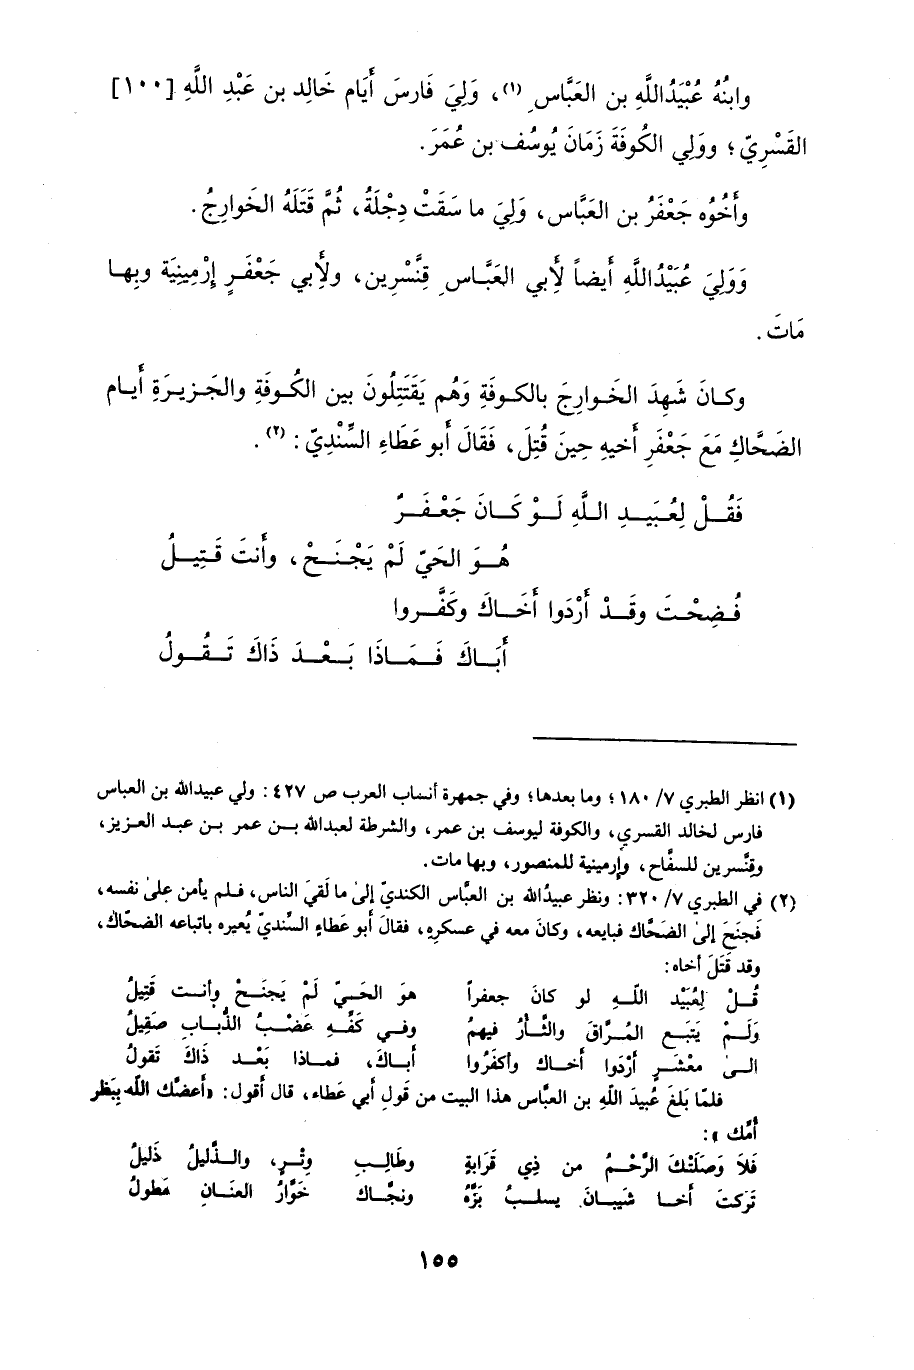 وابنُهُ عُبَيْدُاللَّهِ بن العَبَّاسِ (١)، وَلِيَ فَارسَ أَيَام خَالِد بن عَبْدِ اللَّهِ [١٠٠]
القَسْرِيّ؛ ووَلِي الكوفَةَ زَمَانَ يُوسُف بن عُمَرَ.
وأَخُوُه جَعْفَرُ بن العَبَّاس، وَلِيَ ما سَقَتْ دِجْلَةُ، ثُمَّ قَتَلَهُ الخَوارِجُ.
وَوَلِيَ عُبَيْدُاللَّهِ أَيضاً لأَبِي العَبَّاسِ قِنَّسْرِين، ولأَبِي جَعْفَرٍ إِرْمِينِيَة وبِهـا
مَاتَ.
وكـانَ شَهِدَ الخَـوارِجَ بالكـوفَةِ وَهُم يَقتَتِلُونَ بين الكُوفَةِ والجَـزيـرَةِ أَيـام
الضَحَّاكِ مَعَ جَعْفَرِ أَخيهِ حِينَ قُتِلَ، فَقَالَ أَبو عَطَاءِ السِّنْدِيّ: (٢).
فَقُــلْ لِعُبَيــدِ اللَّهِ لَـوْ كَـانَ جَعْفَـرٌ
هُـوَ الحَيّ لَمْ يَجْنَـحْ، وأَنتَ قَتِيـلُ
فُـضِحْـتَ وقَـدْ أَرْدَوا أَخَـاكَ وكَفَّـروا
أَبَـاكَ فَـمَـاذَا بَـعْـدَ ذَاكَ تَـقُـولُ
(١) انظر الطبري ٧/ ١٨٠؛ وما بعدها؛ وفي جمهرة أنساب العرب ص ٤٢٧: ولي عبيدالله بن العباس
فارس لخالد القسري، والكوفة ليوسف بن عمر، والشرطة لعبدالله بـن عمر بـن عبـد العـزيـز،
وقِنَّسرين للسفَّاح، وإرمينية للمنصور، وبها مات.
(٢) في الطبري ٧/ ٣٢٠: ونظر عبيدُالله بن العبَّاس الكنديّ إلىٰ ما لَقيَ الناس، فـلم يأمن علىٰ نفسه،
فَجنَحَ إلىٰ الضحَّاك فبايعه، وكانَ معه في عسكرِه، فقالَ أَبو عَطَاءٍ السنديّ يُعيره باتباعه الضحّاك،
وقد قَتَلَ أخاه:
قُـلْ لِعُبَيْد اللَّـهِ لو كانَ جعفراً هوَ الحَـيّ لَمْ يَجنَـحْ وأنـت قَتِيلُ
وَلَـمْ يَتبَـعِ المُـرَّاقَ والثَّـأرُ فيهمُ وفـي كَفِّـهِ عَضْـبُ الذُّبـابِ صَقِيلُ
الـىٰ معْشَـرٍ أَرْدَوا أَخـاك وأكفَرُوا أبـاكَ، فمـاذا بَعْـد ذَاكَ تَقولُ
فلمّا بَلغَ عُبيدَ اللَّهِ بن العبَّاس هذا البيت من قول أبي عَطاء، قال أقول: «أَعضَّك اللَّه بِبَظر
أُمّك»:
فَلاَ وَصَلَتْكَ الرَّحْـمُ من ذِي قَرَابةٍ وطَالِـبِ وِتْـرٍ، والـذَّليلُ ذَليلُ
تَركتَ أَخـا شَيبـانَ يسلـبُ بَزَّهُ ونجَّـاك خَوَّارُ العنـانِ مَطولُ
١٥٥